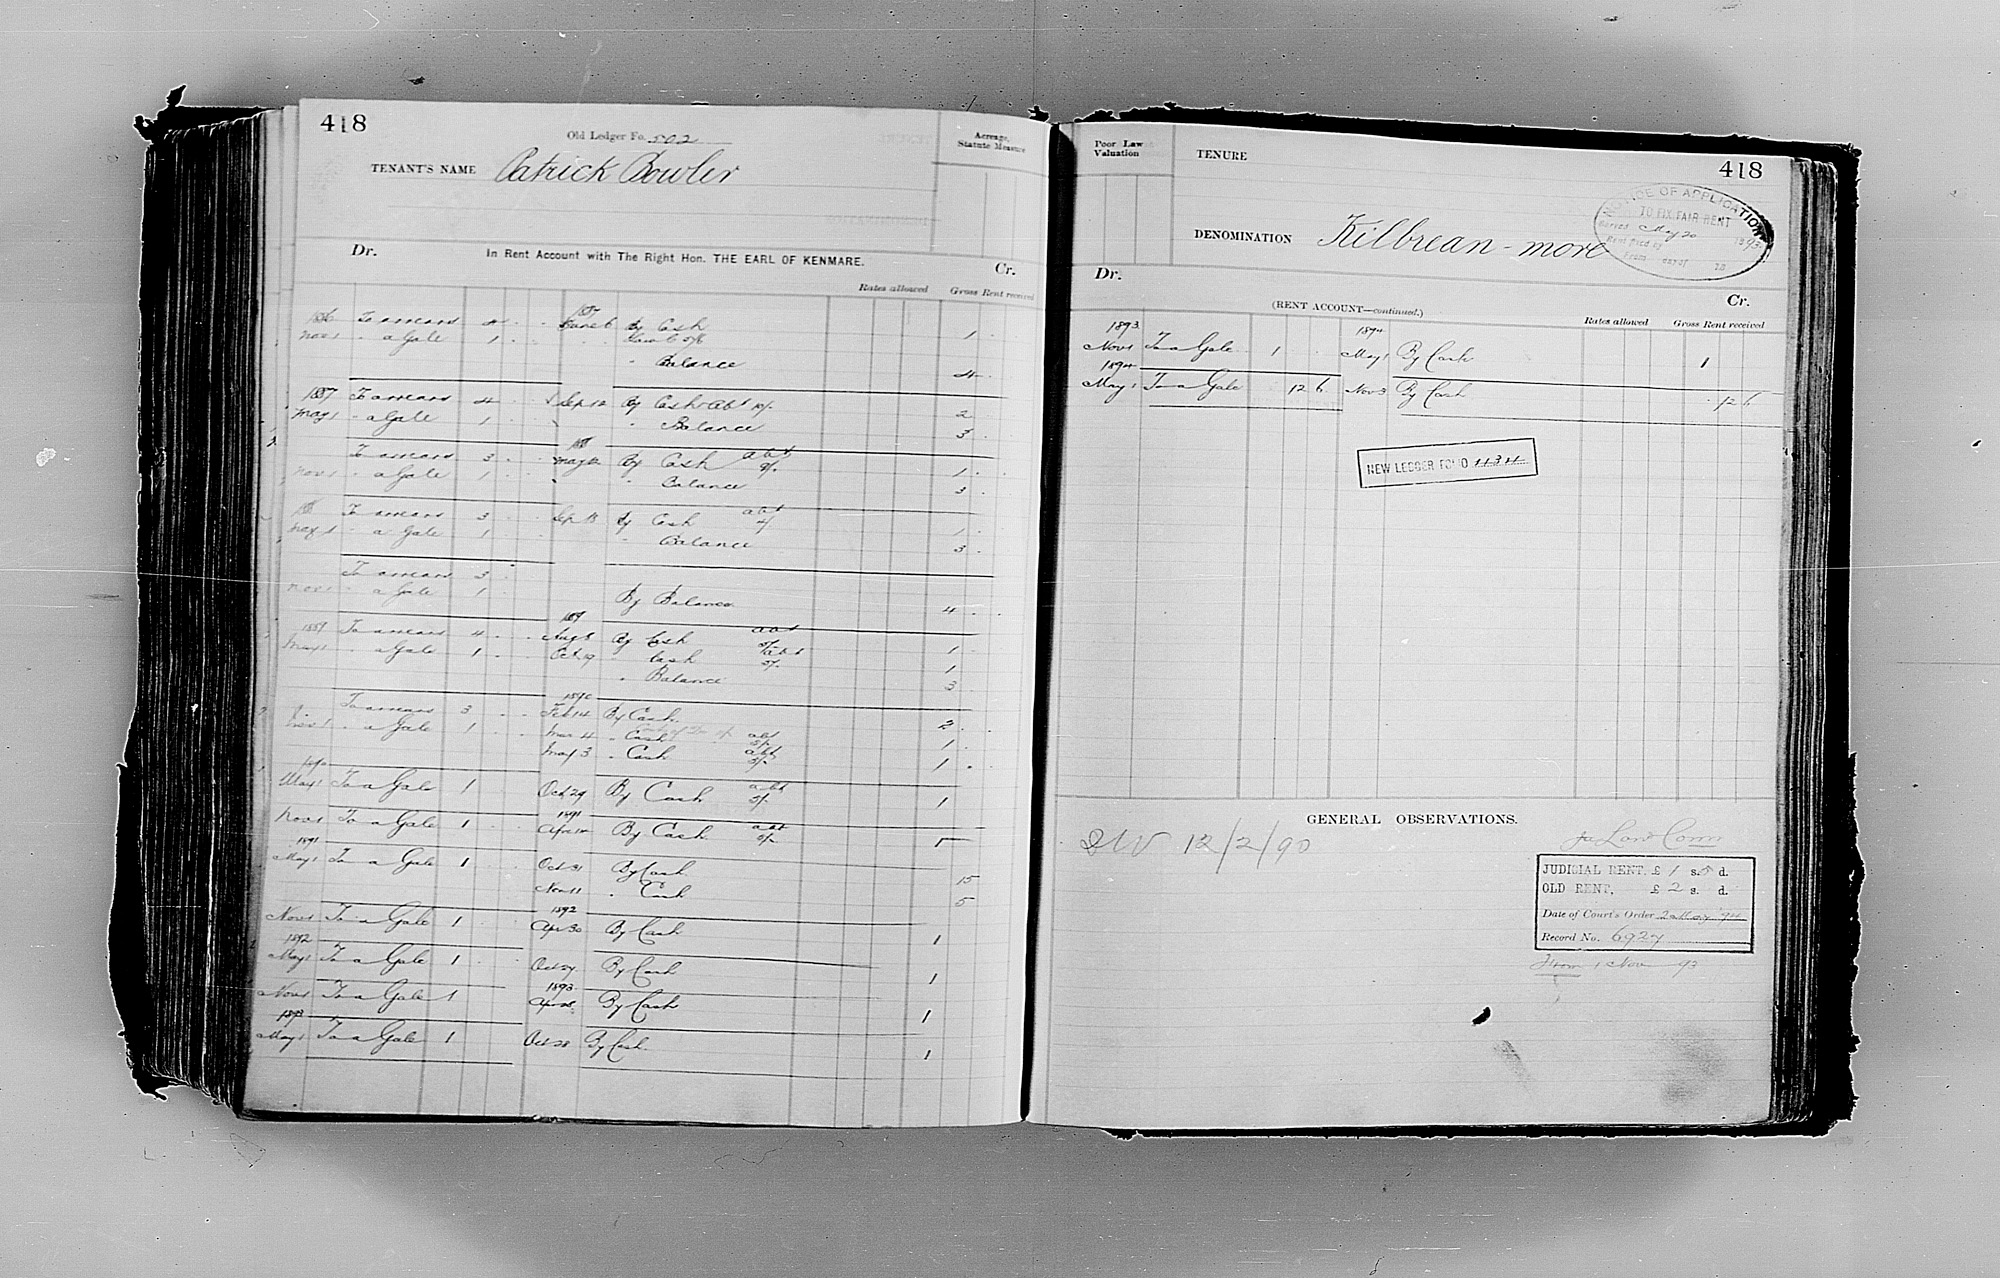 418
Old Ledger Fo. 502
Acreage, Statute Measure
TENANT'S NAME Patrick Bowler
Dr. In Rent Account with The Right Hon. THE EARL OF KENMARE. Cr.
Rates allowed Gross Rent received
1886 To arrears 4 1887 June 6 By Cash 1
Nov 1 " a Gale 1
" Balance 4
1887 To arrears 4 Sep 12 By Cash & abt 10/- 2
May 1 " a Gale 1 " Balance 3
To arrears 3 188 May 12 By Cash abt 5/- 1
Nov 1 " a Gale 1 " Balance 3
188 To arrears 3 Sep 13 By Cash abt 4/ 1
May 1 " a Gale 1 " Balance 3
To arrears 3
Nov 1 " a Gale 1 By Balance 4
1889 To arrears 4 1889 Aug 8 By Cash abt 5/- 1
May 1 " a Gale 1 Oct 19 " Cash abt 5/- 1
" Balance 3
To arrears 3 1890 Feb 14 By Cash 2
Nov 1 " a Gale 1 Mar 4 " Cash abt 5/- 1
May 3 " Cash abt 5/- 1
1890
May 1 To a Gale 1 Oct 29 By Cash abt 5/- 1
Nov 1 To a Gale 1 1891 Apr 14 By Cash abt 5/- 1
1891
May 1 To a Gale 1 Oct 31 By Cash 15
Nov 11 " Cash 5
Nov 1 To a Gale 1 1892 Apr 30 By Cash 1
1892
May 1 To a Gale 1 Oct 27 By Cash 1
Nov 1 To a Gale 1 1893 Apr 28 By Cash 1
1893
May 1 To a Gale 1 Oct 28 By Cash 1
Poor Law Valuation
TENURE
418
NOTICE OF APPLICATION
TO FIX FAIR RENT
Served May 20 1893
Rent fixed by
From day of 18
DENOMINATION Kilbrean-more
Dr. Cr.
(RENT ACCOUNT—continued.)
Rates allowed Gross Rent received
1893 1894
Nov 1 To a Gale 1 May 1 By Cash 1
1894
May 1 To a Gale 12 6 Nov 3 By Cash 12 6
NEW LEDGER FOLIO 1134
GENERAL OBSERVATIONS.
12/2/90
Land Comn
JUDICIAL RENT, £ 1 s. 5 d.
OLD RENT, £ 2 s. d.
Date of Court's Order 2 May '94
Record No. 6927
From 1 Nov 93